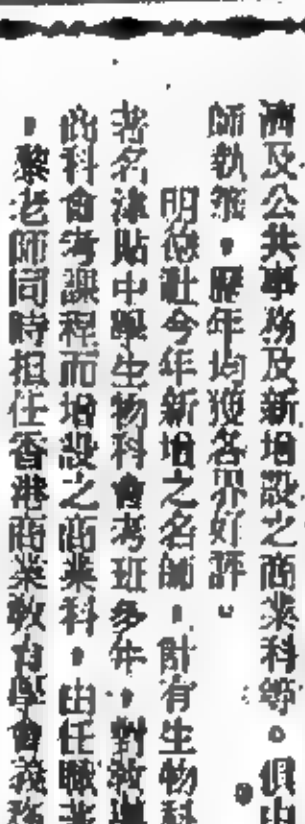 濟及公共事務及新增設之商業科等。俱由
師執教，歷年均獲各界好評。
明德社今年新增之名師，計有生物科
著名津貼中學生物科會考班多年，對教
商科會考課程而增設之商業科，由任職
，黎老師同時担任香港商業教育學會義務